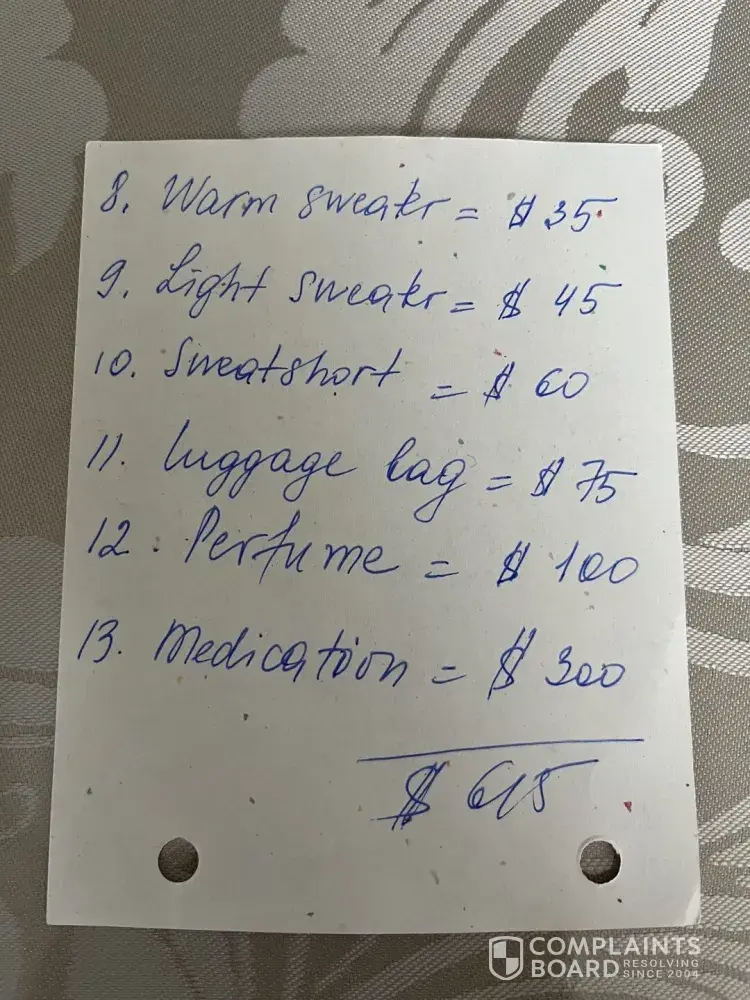 8. Warm sweatr = $ 35.
9. Light sweatr = $ 45
10. Sweatshort = $ 60
11. Luggage bag = $ 75
12. Perfume = $ 100
13. Medication = $ 300
$ 615
COMPLAINTS
BOARD RESOLVING
SINCE 2004